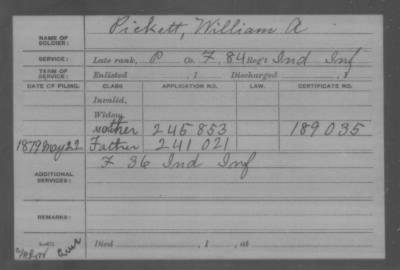 NAME OF SOLDIER: Pickett, William A
SERVICE: Late rank, P Co. F, 84 Reg't Ind Inf
TERM OF SERVICE: Enlisted , 1 Discharged , 1
DATE OF FILING. CLASS. APPLICATION NO. LAW. CERTIFICATE NO.
Invalid,
Widow,
Mother 245 853 189 035
1879 May 22 Father 241 021
ADDITIONAL SERVICES: F 36 Ind Inf
REMARKS:
Died , 1 , at